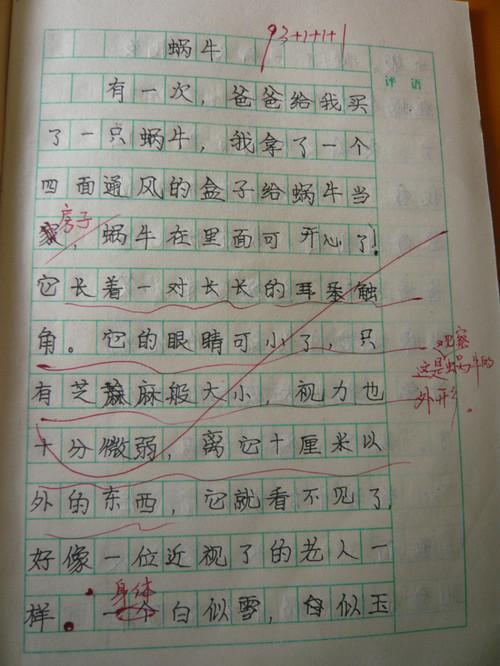 蜗牛
93+1+1+1
评语
有一次，爸爸给我买
了一只蜗牛，我拿了一个
四面通风的盒子给蜗牛当
家，蜗牛在里面可开心了！
房子
它长着一对长长的耳朵触
角。它的眼睛可小了，只
观察
这是蜗牛的
外形
有芝麻般大小，视力也
十分微弱，离它十厘米以
外的东西，它就看不见了，
好像一位近视了的老人一
样。个白似雪，白似玉
身体